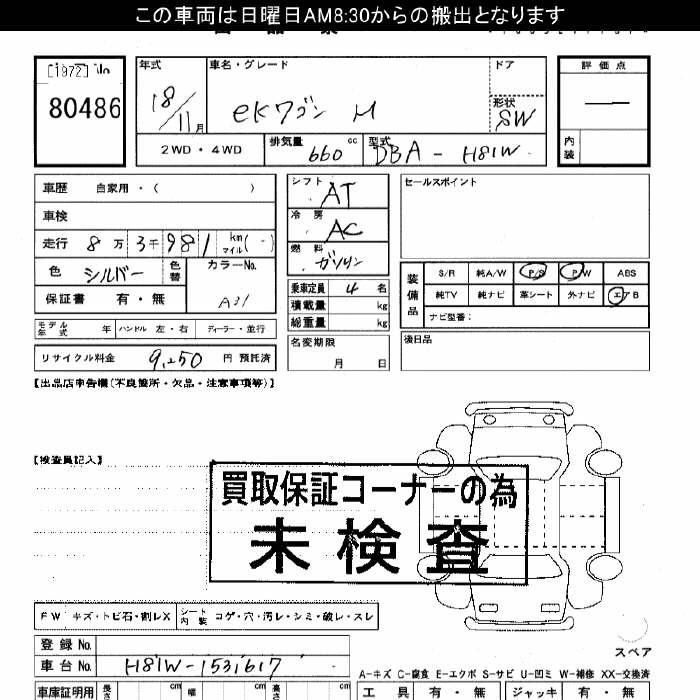 この車両は日曜日AM8:30からの搬出となります
[1972] No
80486
年式
18/11月
車名・グレード
eKワゴン M
ドア
形状
SW
評価点
内装
2WD・4WD
排気量
660 cc
型式
DBA-H81W
車歴 自家用・( )
車検
走行 8万3千981 km マイル(-)
色 シルバー 色替
カラーNo.
A31
保証書 有・無
モデル年式 年 ハンドル 左・右 ディーラー・並行
リサイクル料金 9,250 円 預託済
シフト AT
冷房 AC
燃料 ガソリン
乗車定員 4 名
積載量 kg
総重量 kg
名変期限
月 日
セールスポイント
装備品
S/R 純A/W P/S P/W ABS
純TV 純ナビ 革シート 外ナビ エアB
ナビ型番:
後日品
【出品店申告欄(不良箇所・欠品・注意事項等)】
【検査員記入】
買取保証コーナーの為
未検査
FW キズ・トビ石・割レX
シート内装 コゲ・穴・汚レ・シミ・破レ・スレ
登録No.
車台No. H81W-1531617
スペア
A-キズ C-腐食 E-エクボ S-サビ U-凹ミ W-補修 XX-交換済
車庫証明用 長さ cm 幅 cm 高さ cm
工具 有・無 ジャッキ 有・無